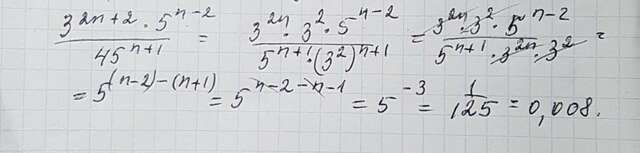 \frac{3^{2n+2} \cdot 5^{n-2}}{45^{n+1}} = \frac{3^{2n} \cdot 3^2 \cdot 5^{n-2}}{5^{n+1} \cdot (3^2)^{n+1}} = \frac{3^{2n} \cdot 3^2 \cdot 5^{n-2}}{5^{n+1} \cdot 3^{2n} \cdot 3^2} =
= 5^{(n-2)-(n+1)} = 5^{n-2-n-1} = 5^{-3} = \frac{1}{125} = 0,008.